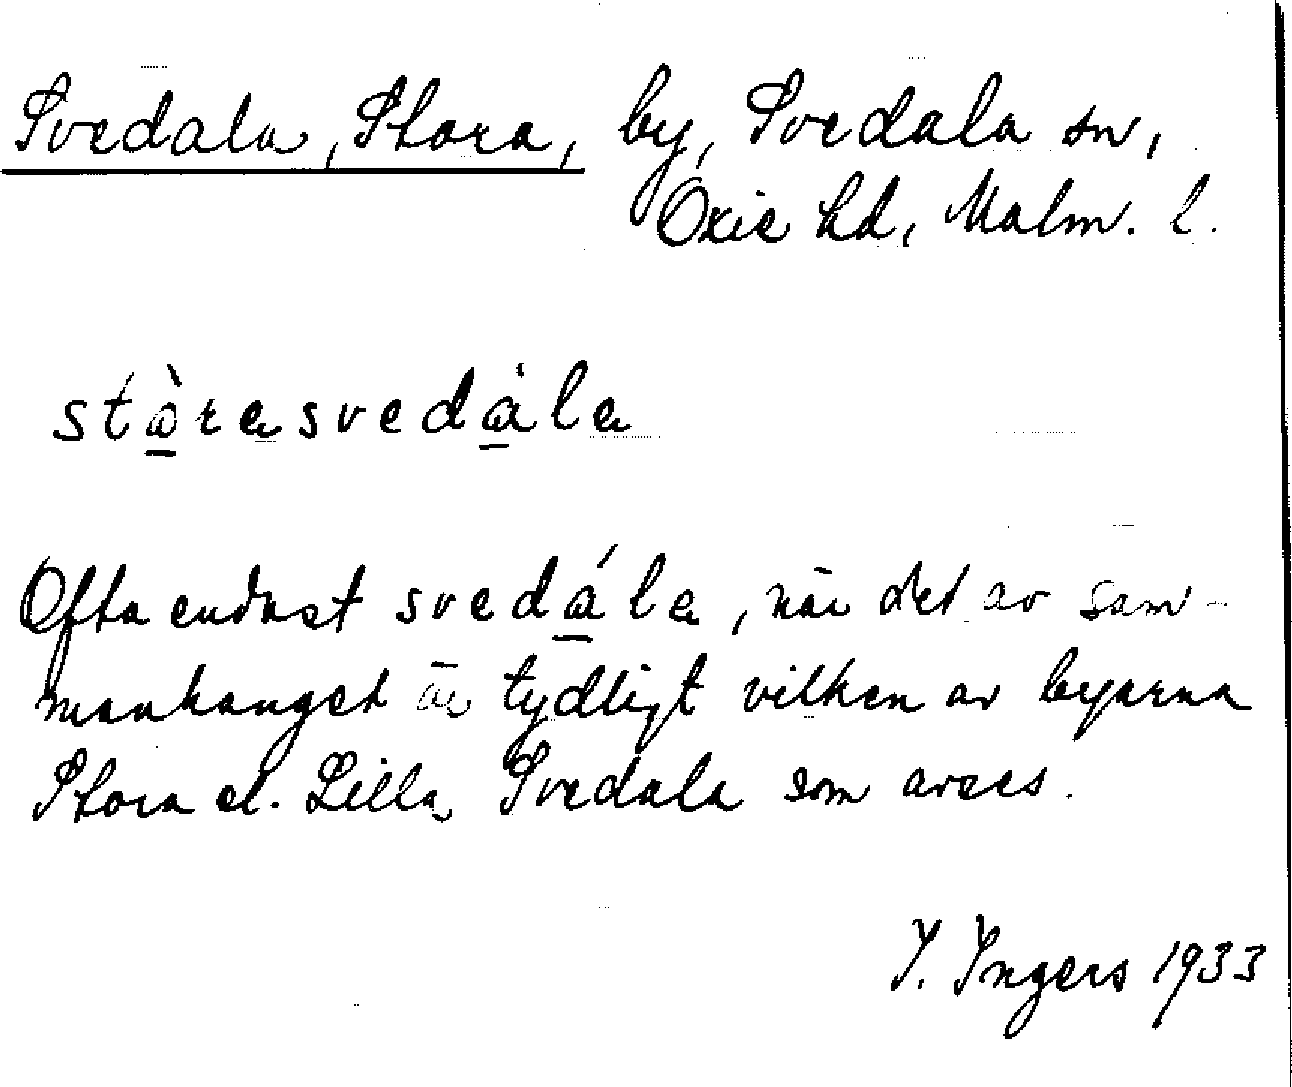 Svedala, Stora, by, Svedala sn,
Oxie hd, Malm. l.
stàrasvedála
Ofta endast svedála, när det av sam-
manhanget är tydligt vilken av byarna
Stora el. Lilla Svedala som avses.
I. Ingers 1933